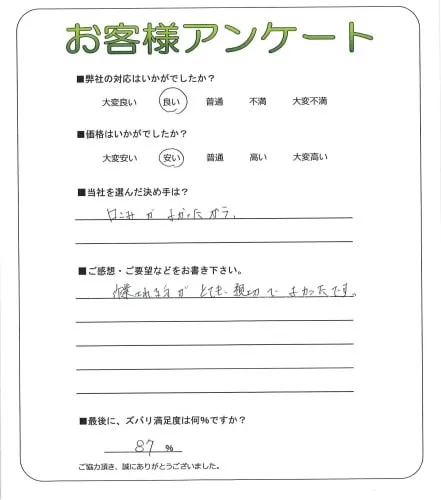 お客様アンケート
■弊社の対応はいかがでしたか?
大変良い 良い 普通 不満 大変不満
■価格はいかがでしたか?
大変安い 安い 普通 高い 大変高い
■当社を選んだ決め手は?
口こみがよかったから。
■ご感想・ご要望などをお書き下さい。
作業される方がとても親切でよかったです。
■最後に、ズバリ満足度は何%ですか?
87 %
ご協力頂き、誠にありがとうございました。